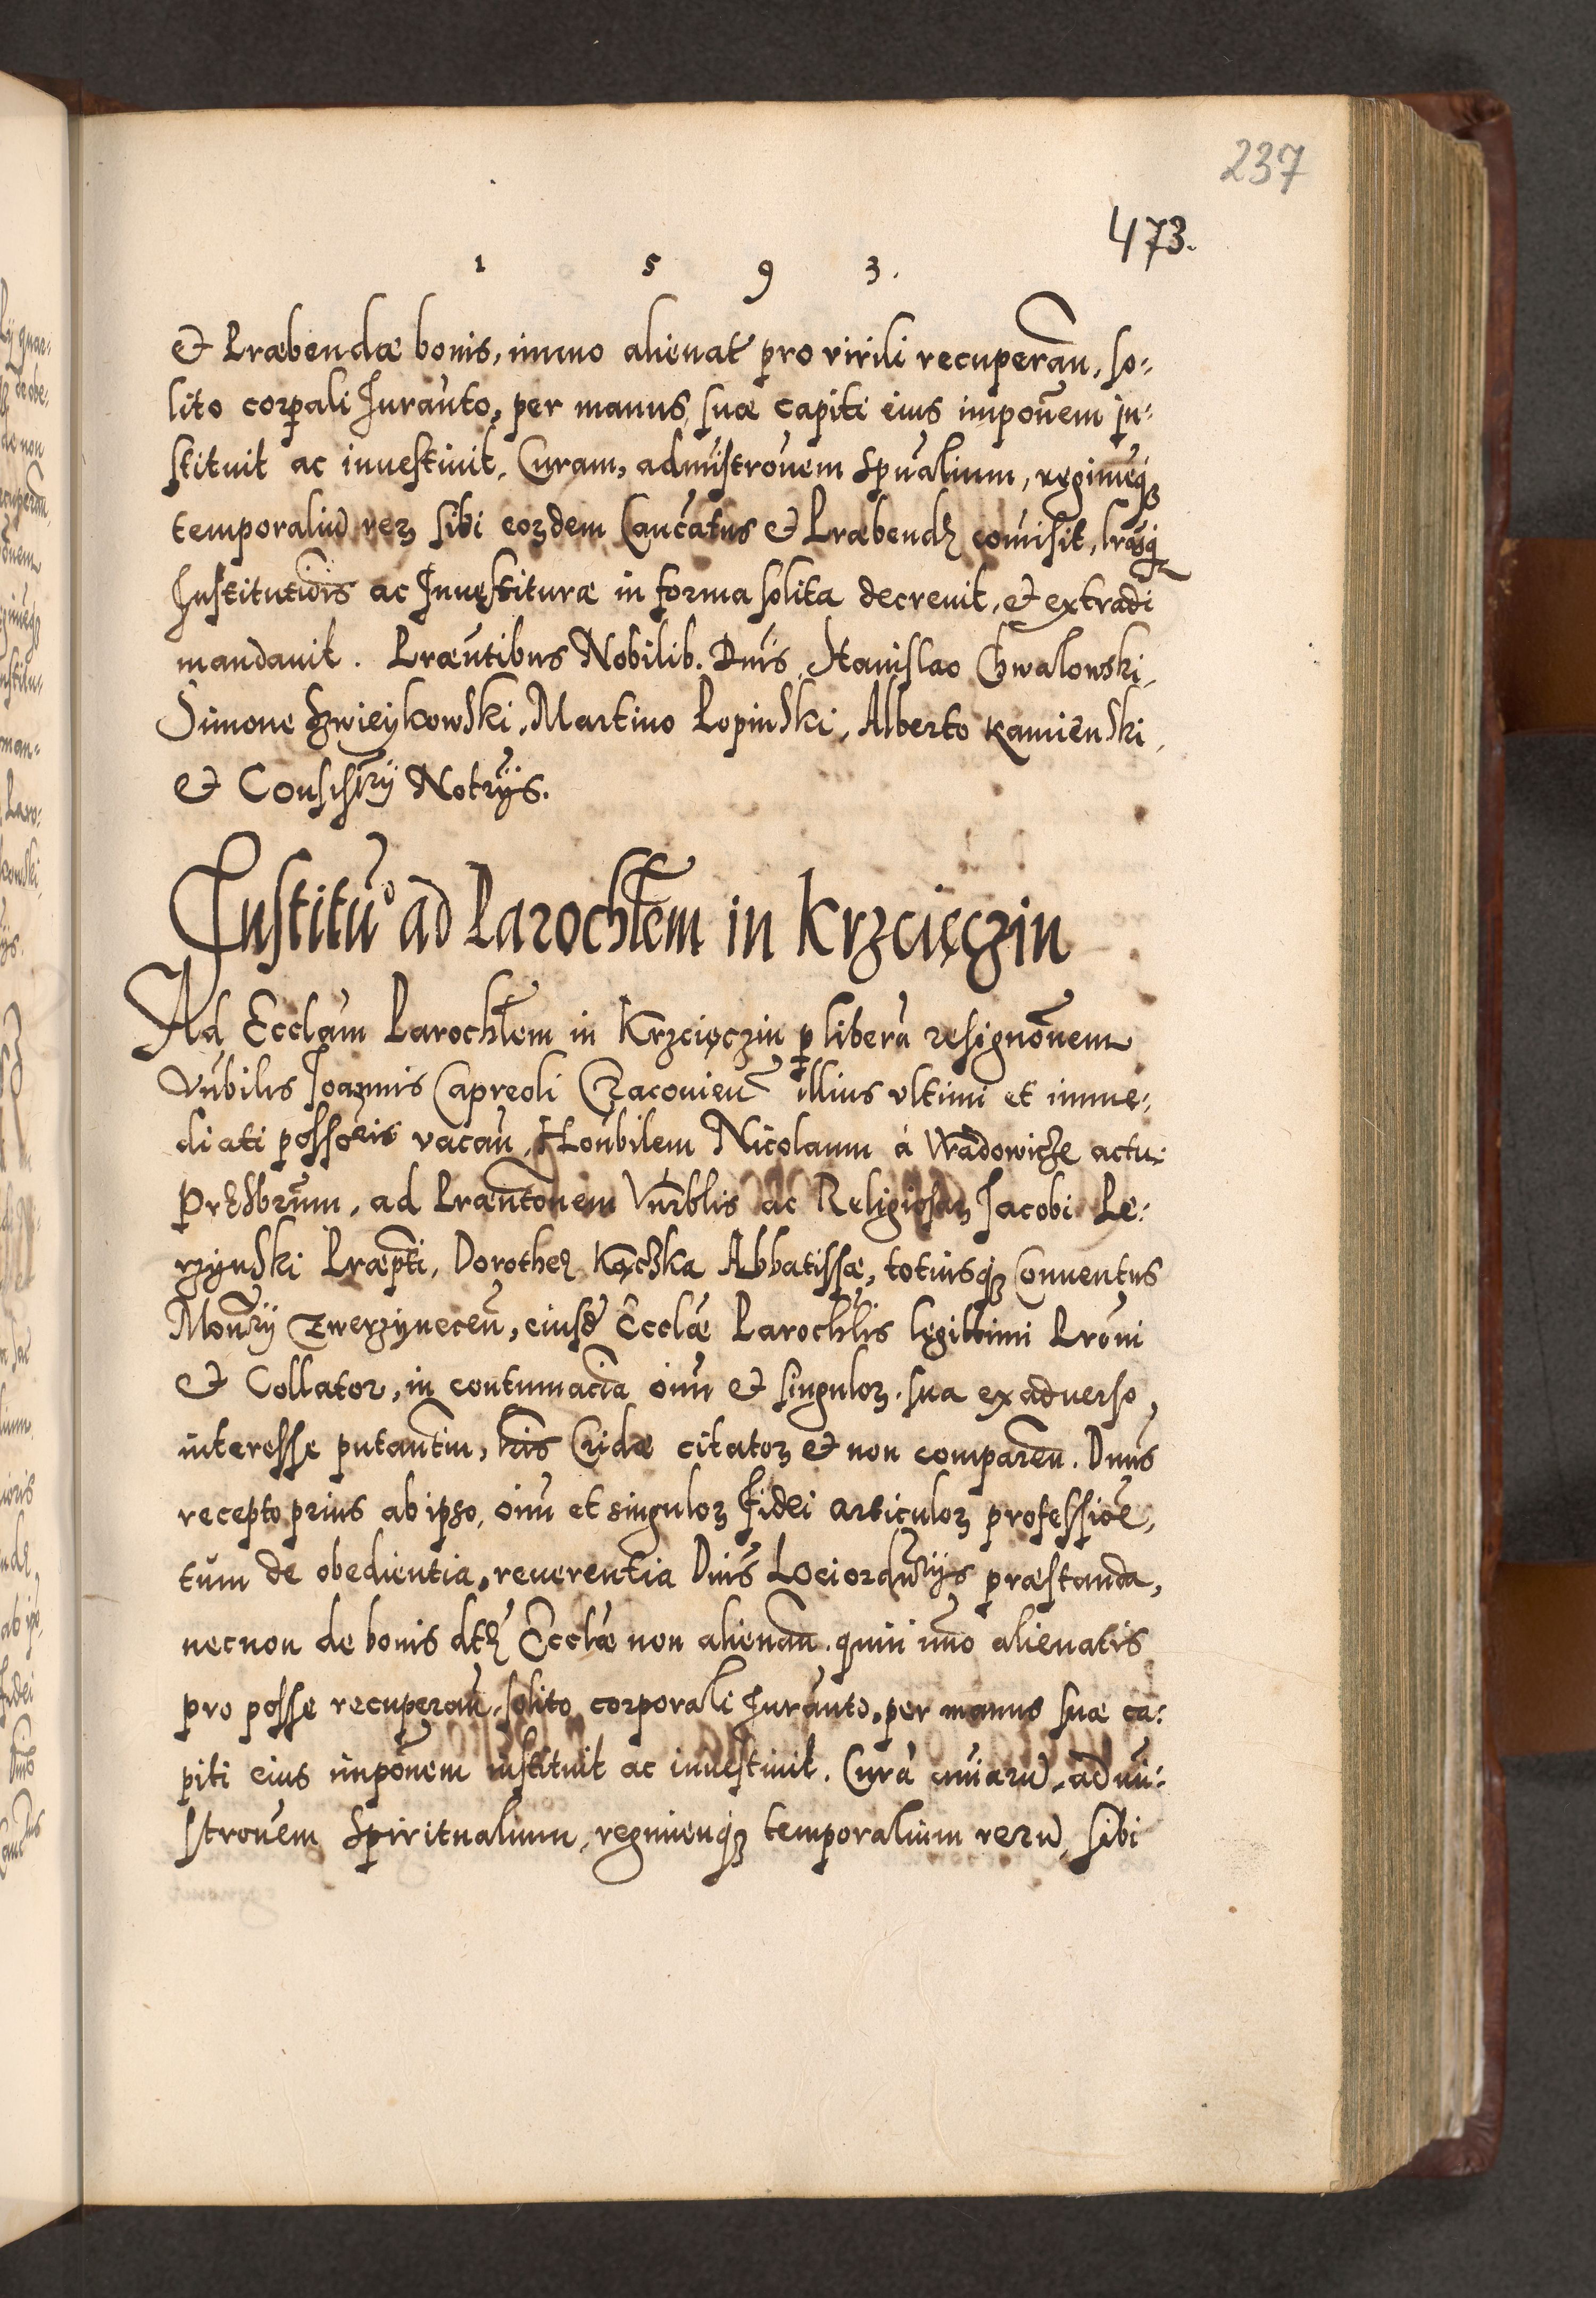 237
473.
1 5 9 3.
et Præbendæ bonis, immo alienat̃ pro virili recuperan̄, so⸗
lito corꝑali Iuran̄to, per manus suæ capiti eius impon̄em in⸗
stituit ac inuestiuit, Curam, admīstron̄em Spūalium, regimēqꝫ
temporaliū reꝝ sibi eoꝝdem Cancātus et Præbendę com̄isit, lrāsqꝫ
Institutiōis ac Inuestituræ in forma solita decreuit, et extradi
mandauit. Præn̄tibus Nobilib. Dn̄is Stanislao Chwalowski,
Simone Szwieykowski, Martino Lopinski, Alberto Kamienski,
et Consistr̄ij Notr̄ijs.
Institū° ad Parochl̄em in Krzcięczin
Ad Eccl̄am Parochl̄em in Krzcięczin ꝑ liberā resignōnem
Vn̄bilis Joannis Capreoli Cracouien̄ illius vltimi et imme⸗
diati possōris vacan̄, Hon̄bilem Nicolaum à Wadowicze actu⸗
Prēsbrūm, ad Præn̄tōnem Vnr̄blis ac Religiosaꝝ Jacobi Le⸗
rzynski Præp̄ti, Dorotheę Kączka Abbatissæ, totiusqꝫ Conuentus
Monr̄ij Zwerzynecen̄, eiusd̄ Eccl̄æ Parochl̄is legittimi Prōni
et Collator, in contumaciā oīu et singuloꝝ. sua ex aduerso,
interesse putan̄tiu, lr̄is Cridæ citatoꝝ et non comparen̄. Dnūs
recepto prius ab ipso, oīu et singuloꝝ Fidei articuloꝝ professiōe,
tum de obedientia, reuerentia Dn̄is Loci ordr̄ijs præstanda,
necnon de bonis dtę̄ Eccl̄æ non alienan̄. quin im̄o alienatis
pro posse recuperan̄, solito corporali Iuran̄to, per manus suæ ca⸗
piti eius impōnem instituit ac inuestiuit. Curā an̄iarū, admi⸗
strōnem Spiritualium, regimenqꝫ temporalium rerū, sibi